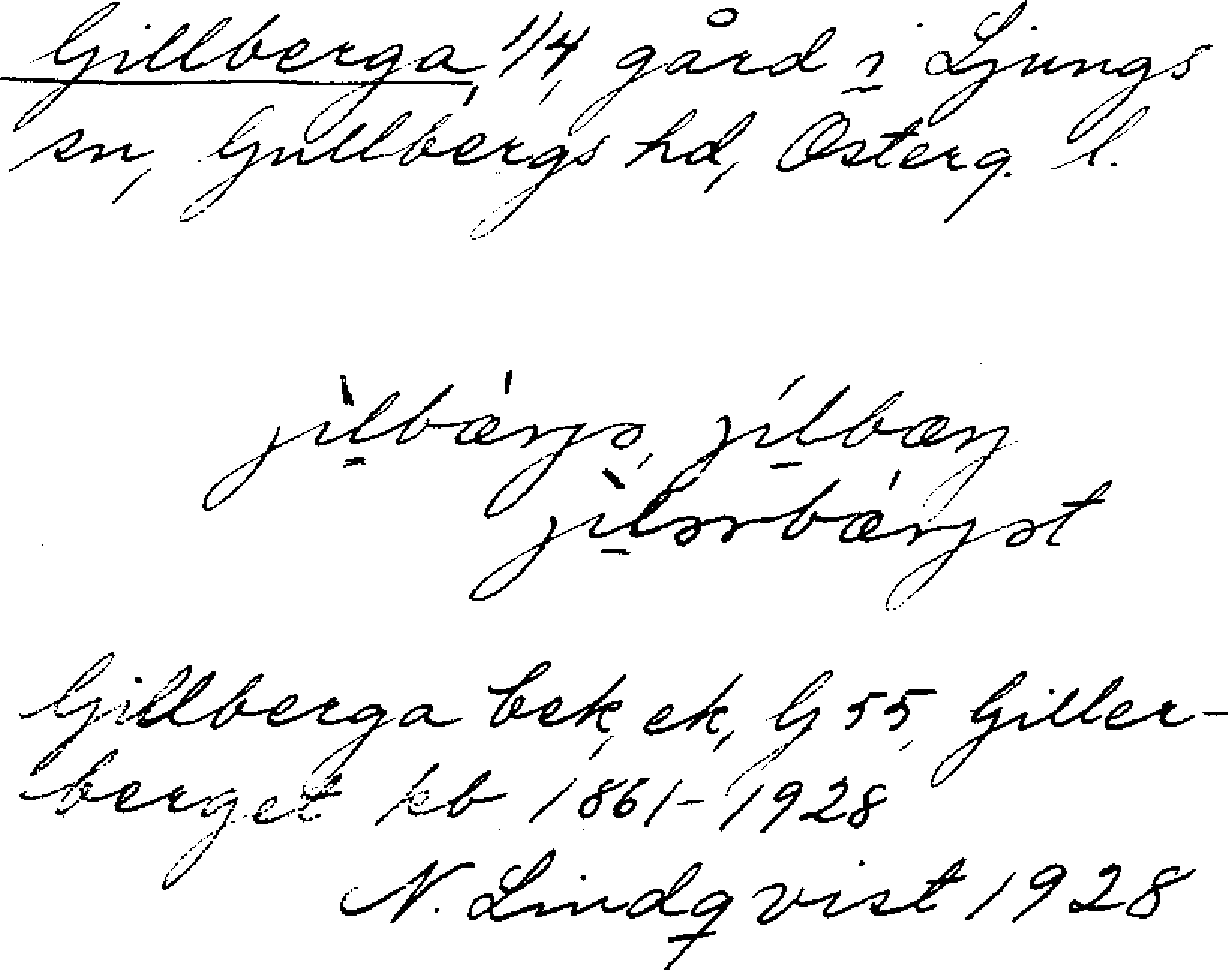 Gillberga, 1/4, gård i Ljungs
sn, Gullbergs hd, Österg. l.
jìlbárjə, jílbærj
jìlərbárjət
Gillberga bek, ek, G 55, Giller-
berget kb 1861-1928
N. Lindqvist 1928